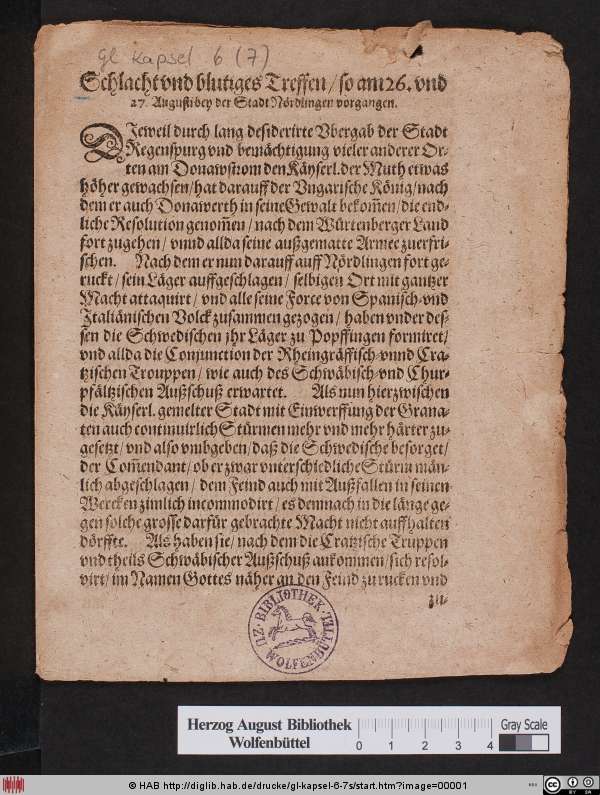 gl Kapsel 6 (7)
Schlacht vnd blutiges Treffen / so am 26. vnd
27. Augusti bey der Stadt Nördlingen vorgangen.
DIeweil durch lang desiderirte Vbergab der Stadt
Regenspurg vnd bemächtigung vieler anderer Or-
ten am Donawstrom den Käyserl. der Muth etwas
höher gewachsen / hat darauff der Vngarische König / nach
dem er auch Donawerth in seine Gewalt bekom̃en / die end-
liche Resolution genom̃en / nach dem Würtenberger Land
fort zugehen / vnnd allda seine außgematte Armee zuerfri-
schen. Nach dem er nun darauff auff Nördlingen fort ge-
ruckt / sein Läger auffgeschlagen / selbigen Ort mit gantzer
Macht attaquirt / vnd alle seine Force von Spanisch- vnd
Italiänischen Volck zusammen gezogen / haben vnder des-
sen die Schwedischen jhr Läger zu Popffingen formiret /
vnd allda die Conjunction der Rheingräffisch- vnnd Cra-
tzischen Trouppen / wie auch des Schwäbisch- vnd Chur-
pfältzischen Außschuß erwartet. Als nun hierzwischen
die Käyserl. gemelter Stadt mit Einwerffung der Grana-
ten auch continuirlich Stürmen mehr vnd mehr härter zu-
gesetzt / vnd also vmbgeben / daß die Schwedische besorget /
der Com̃endant / ob er zwar vnterschiedliche Stürm män-
lich abgeschlagen / dem Feind auch mit Außfallen in seinen
Wercken zimlich incommodirt / es demnach in die länge ge-
gen solche grosse darfür gebrachte Macht nicht auffhalten
dörffte. Als haben sie / nach dem die Cratzische Truppen
vnd theils Schwäbischer Außschuß ankommen / sich resol-
virt / im Namen Gottes näher an den Feind zu rucken vnd
zu-
BIBLIOTHEK
ZU WOLFENBÜTTEL
Herzog August Bibliothek
Wolfenbüttel
0 1 2 3 4
Gray Scale
© HAB http://diglib.hab.de/drucke/gl-kapsel-6-7s/start.htm?image=00001
CC BY SA